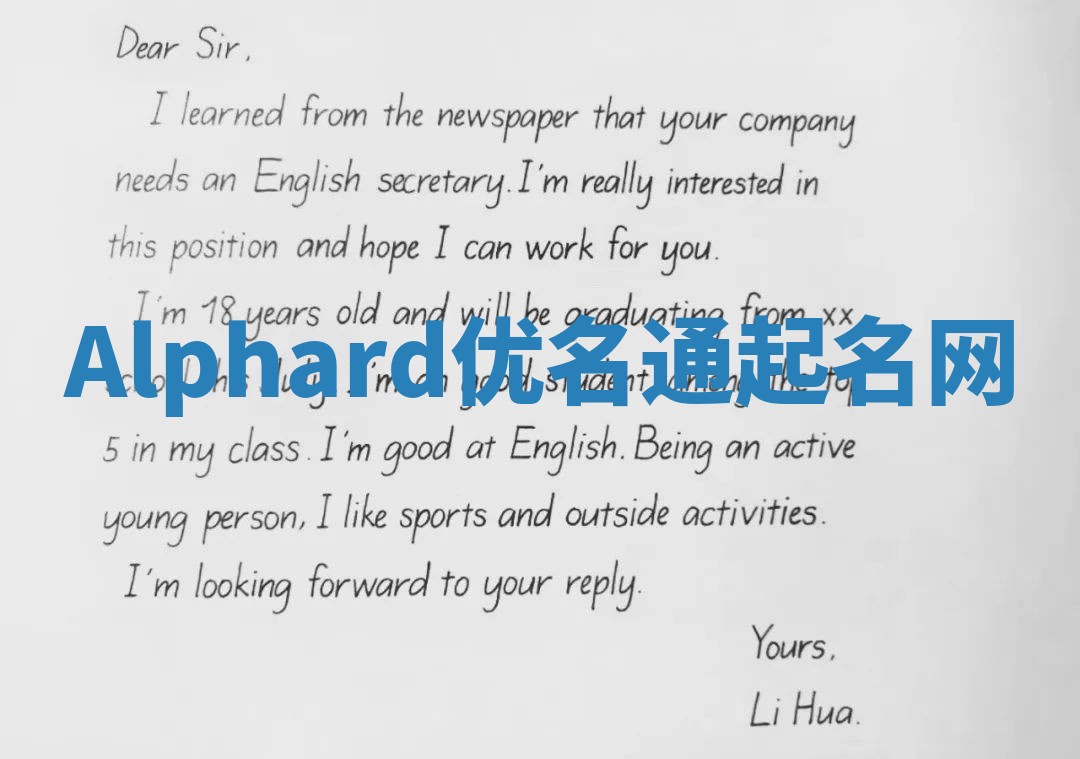 Dear Sir,
I learned from the newspaper that your company
needs an English secretary. I'm really interested in
this position and hope I can work for you.
I'm 18 years old and will be graduating from xx
Alphard优名通起名网
school this July. I'm an good student among the top
5 in my class. I'm good at English. Being an active
young person, I like sports and outside activities.
I'm looking forward to your reply.
Yours,
Li Hua.